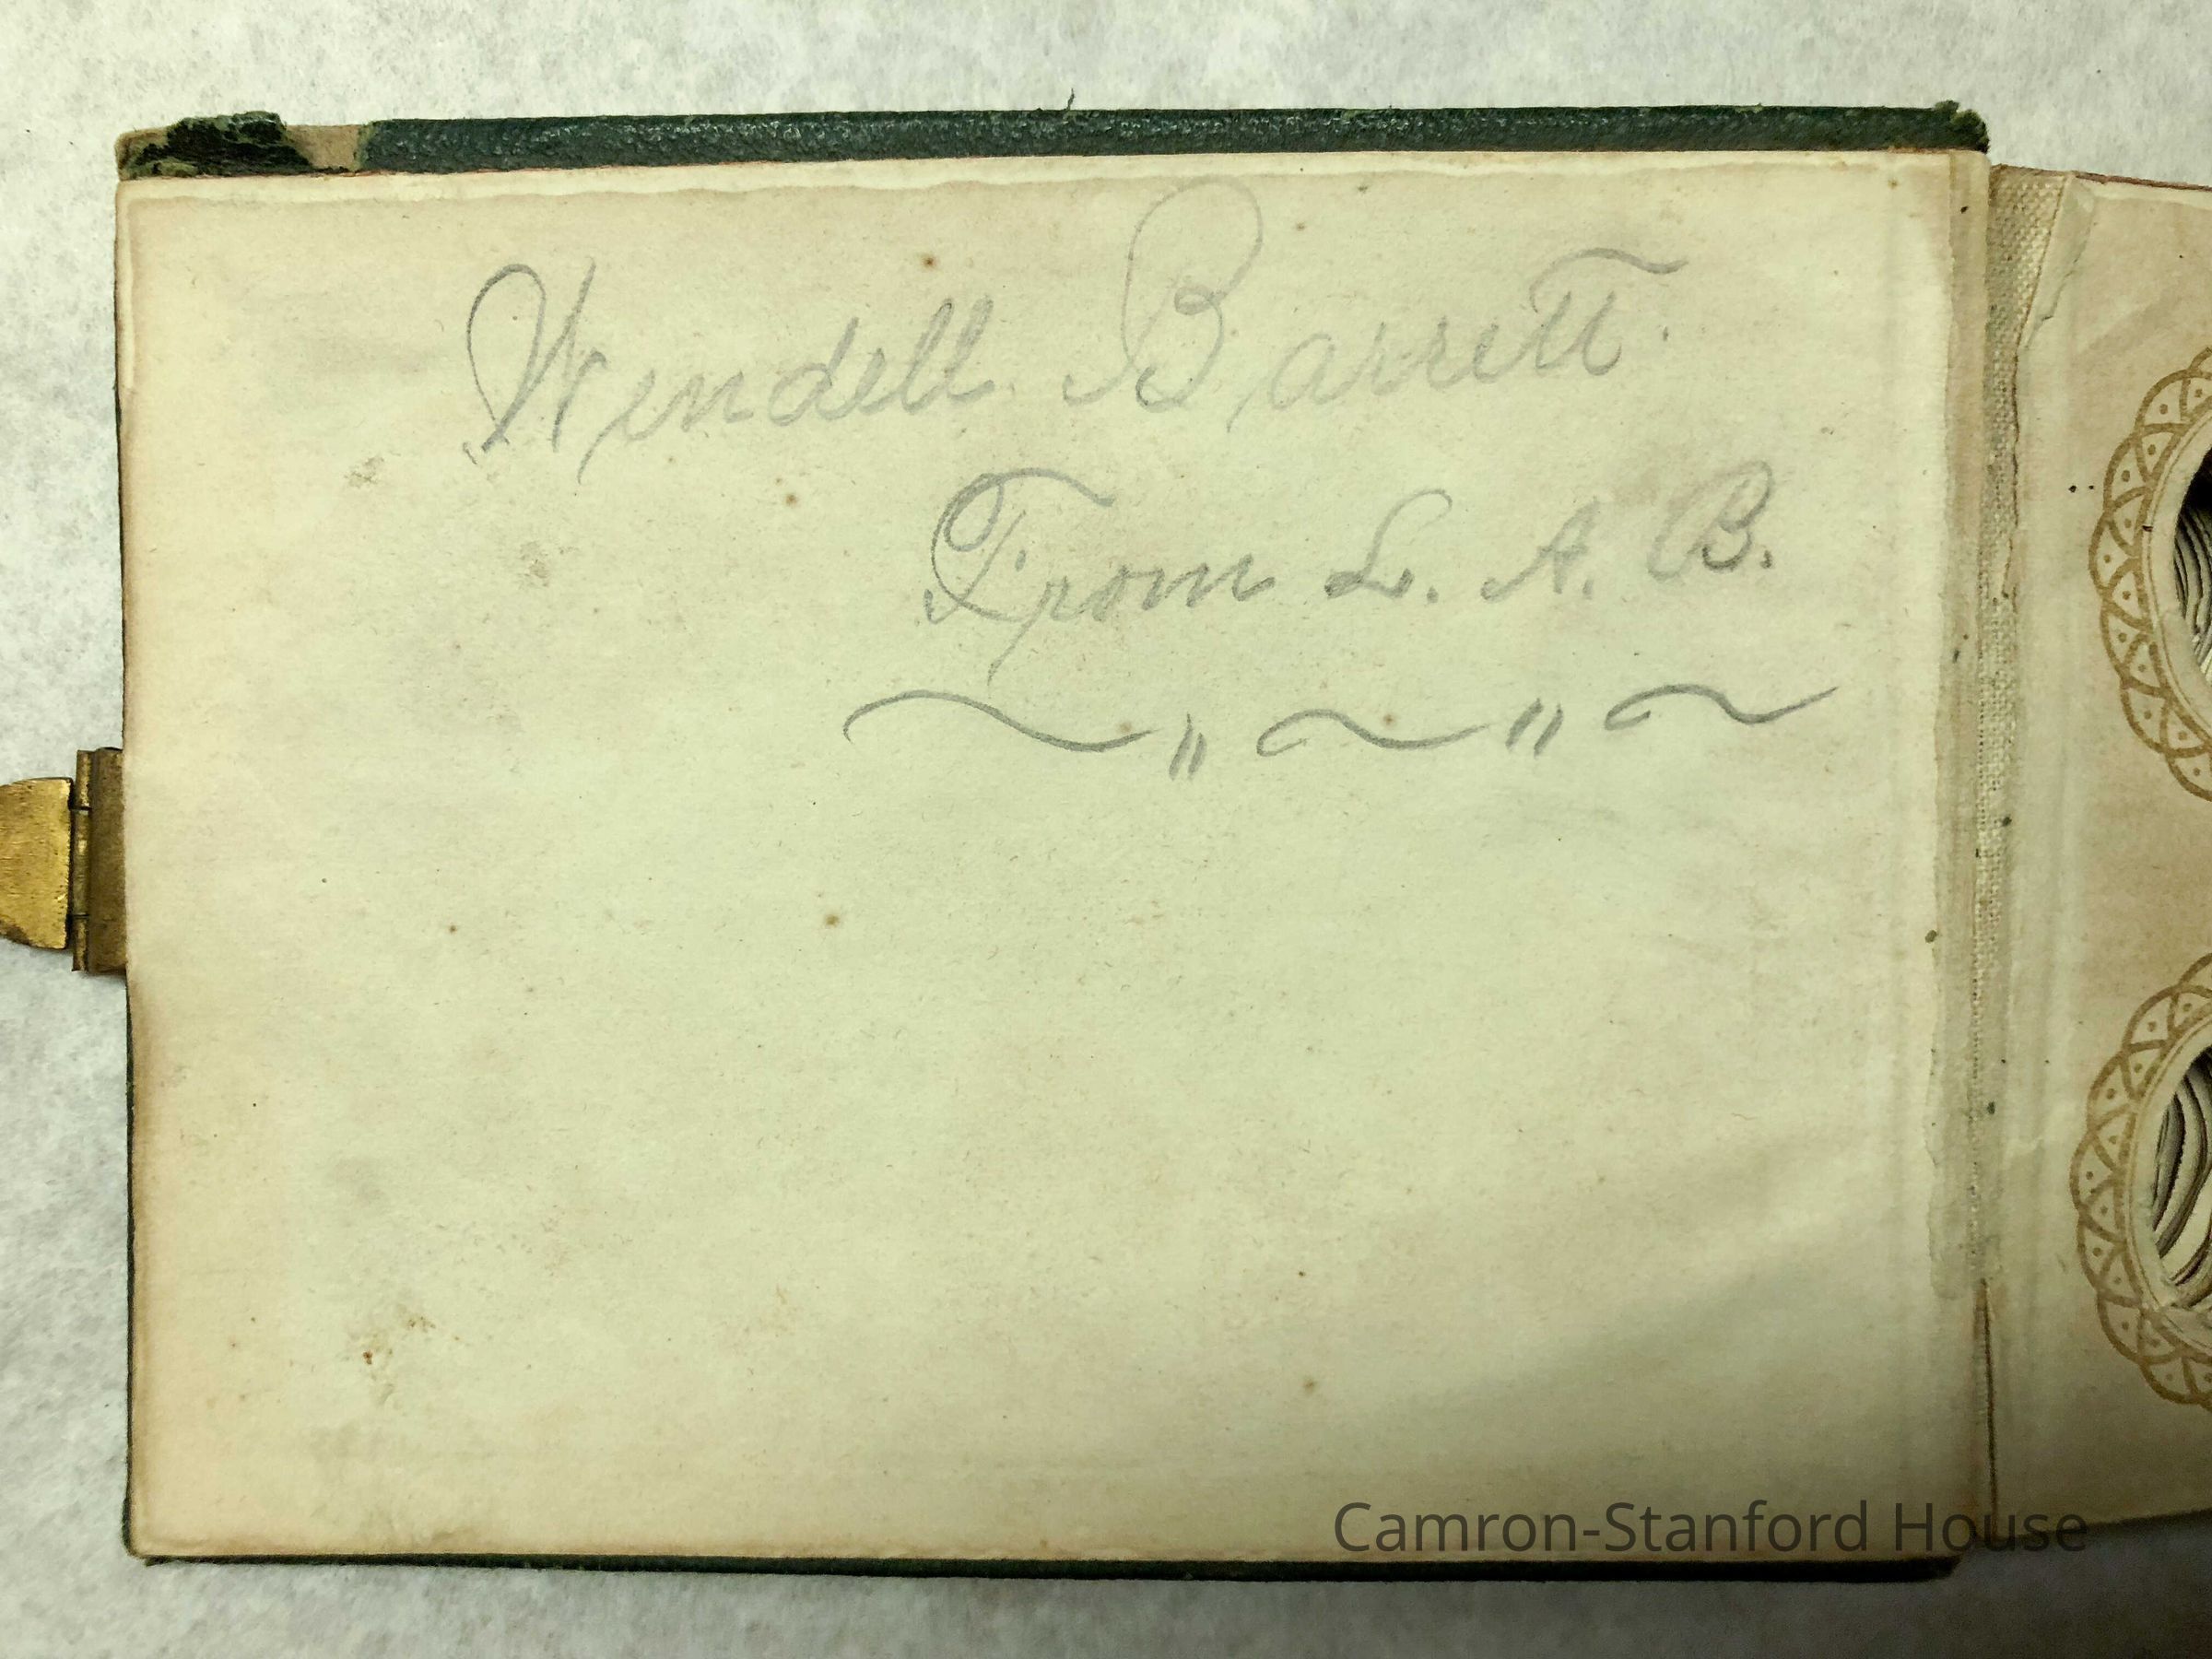 Wendell Barrett.
From L. A. B.
~ " ~ " ~
Camron-Stanford House